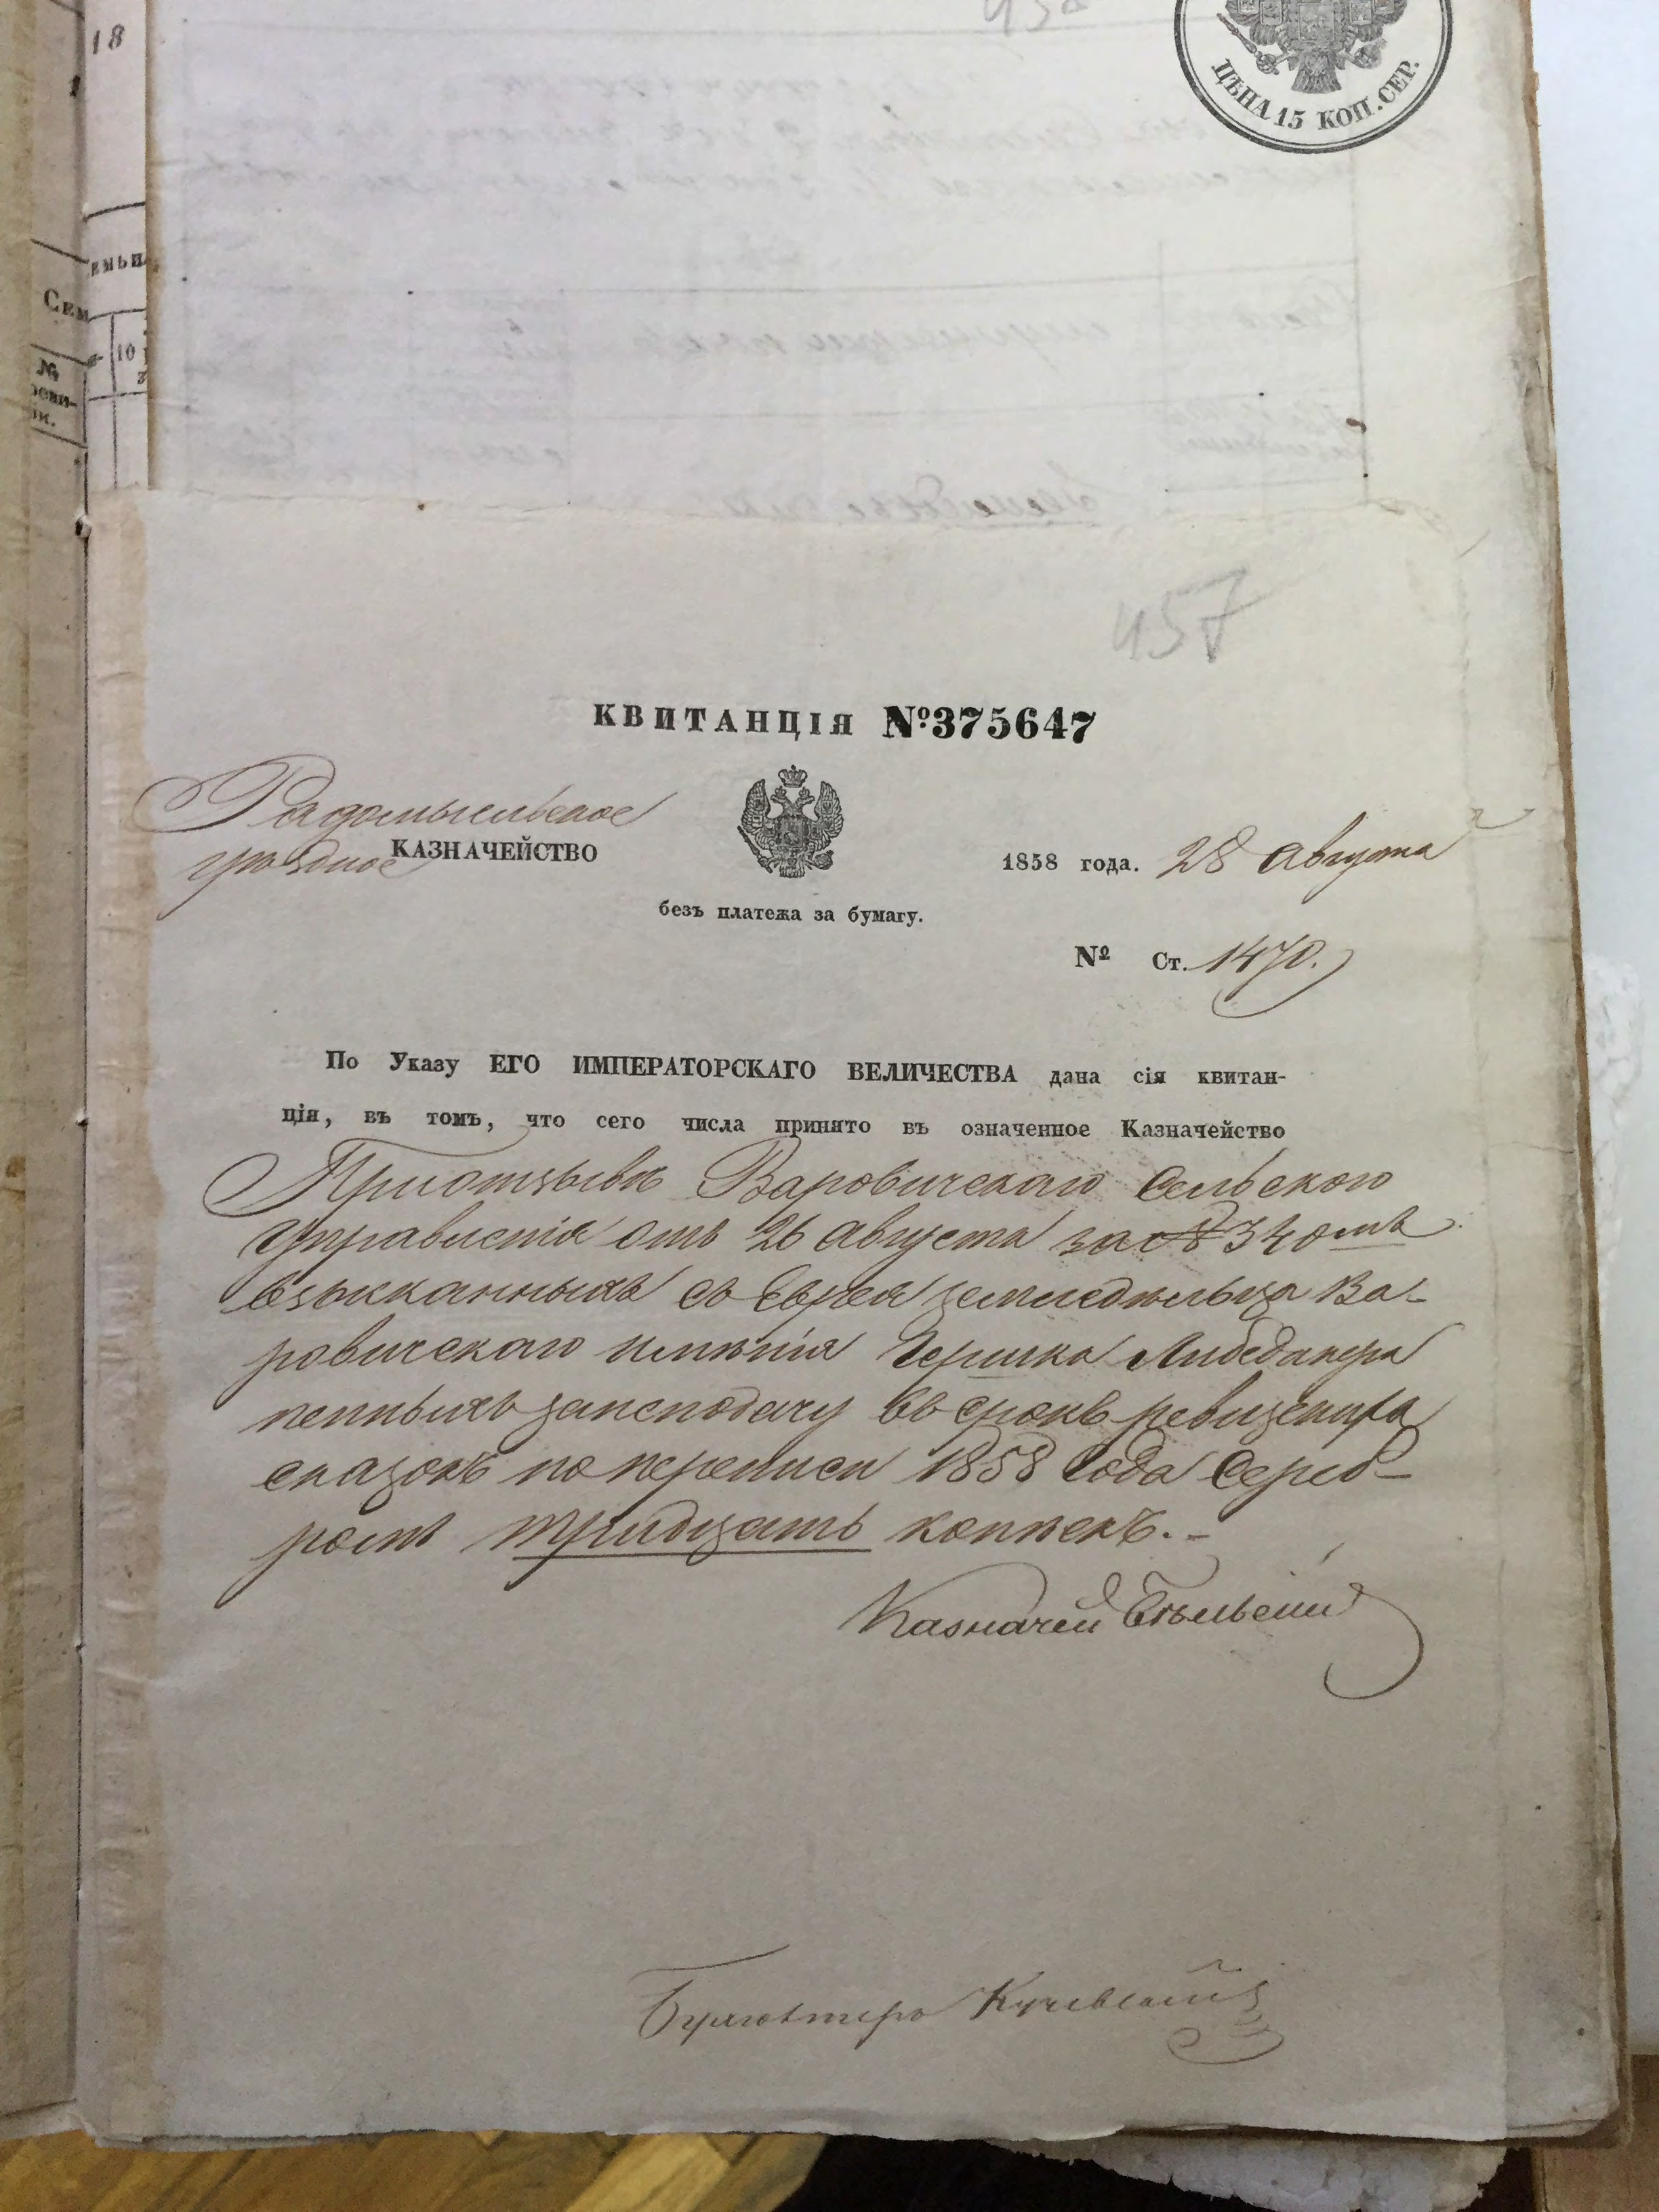 18
ЦѢНА 15 КОП. СЕР.
Сем
№
10
457
КВИТАНЦІЯ №375647
Радомысльское
уѣздное КАЗНАЧЕЙСТВО
1858 года. 28 Августа
безъ платежа за бумагу.
№ Ст. 1470.
По Указу ЕГО ИМПЕРАТОРСКАГО ВЕЛИЧЕСТВА дана сія квитан-
ція, въ томъ, что сего числа принято въ означенное Казначейство
При отзывѣ Варовичскаго Сельского
Управленія отъ 26 Августа за № 340мъ
взысканныхъ съ Еврея земледѣльца Ва-
ровичскаго имѣнія Гершка Либедакера
пенныхъ за неподачу въ срокъ ревизскихъ
сказокъ по переписи 1858 года Сереб-
ромъ тридцать копѣекъ.-
Казначей Бѣльскій
Бухгалтеръ